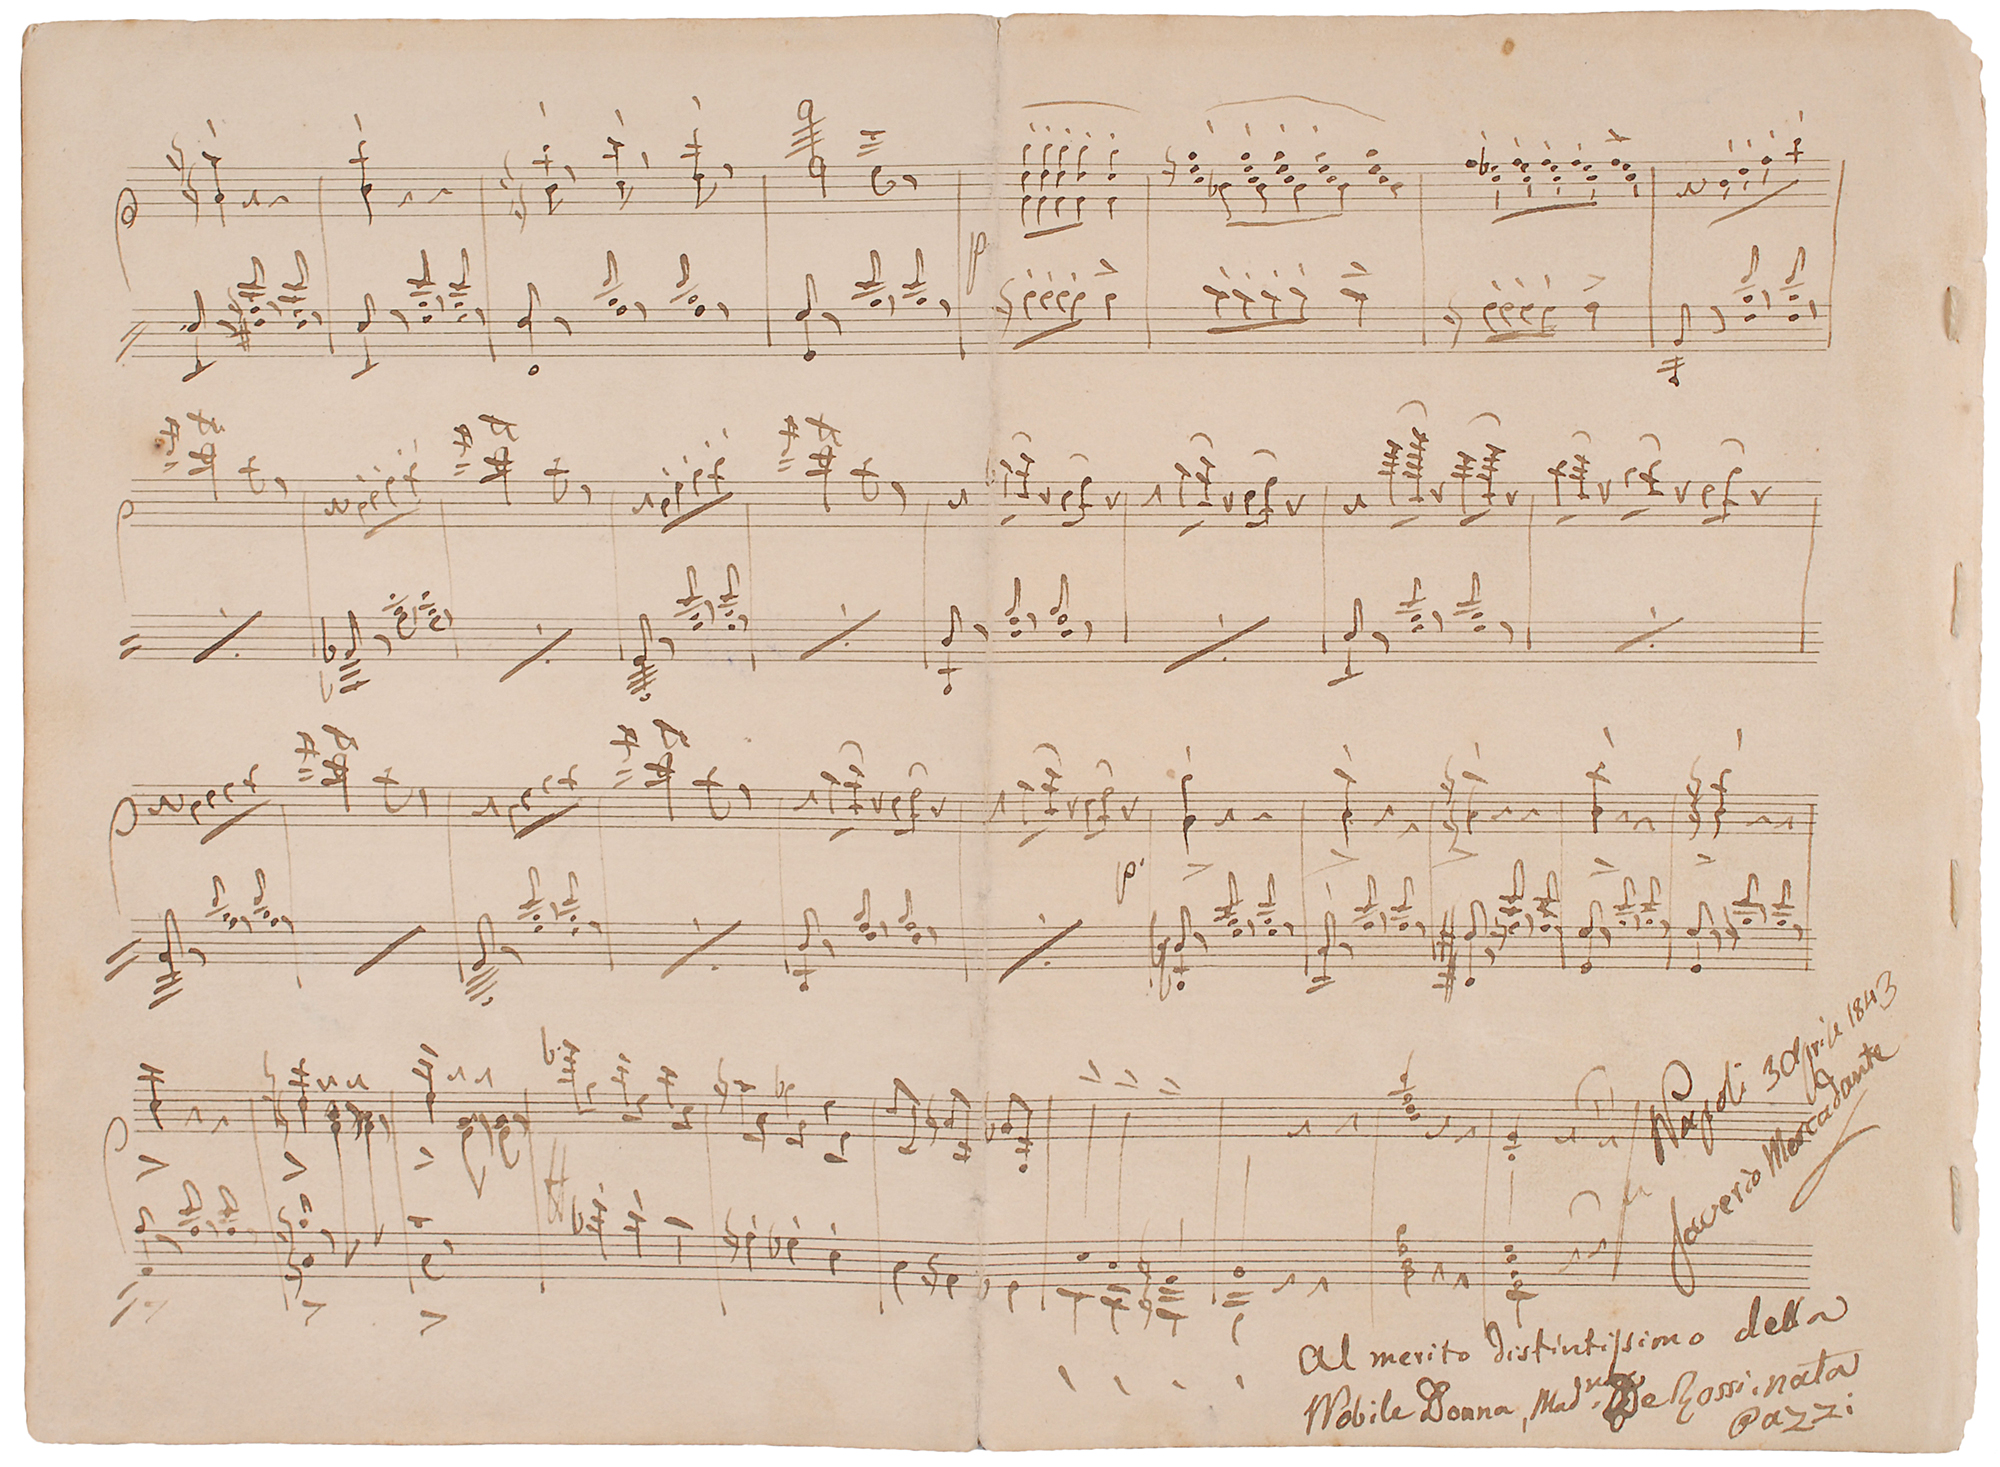 p
p.
Napoli 3 Aprile 1843
Saverio Mercadante
Al merito distintissimo della
Nobile Donna, Mad.
Pazzi